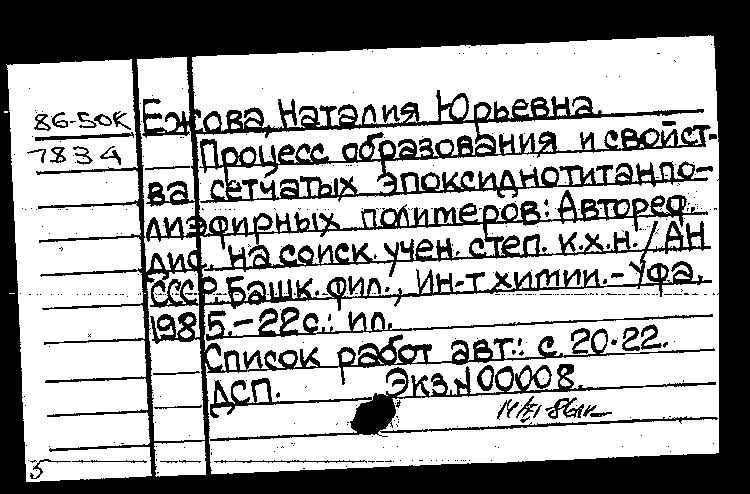 86-50К Ежова, Наталия Юрьевна.
783 Процесс образования и свойст-
ва сетчатых эпоксиднотитанпо-
лиэфирных полимеров: Автореф.
дис. на соиск. учен. степ. к.х.н. / АН
СССР. Башк. фил., Ин-т химии. - Уфа,
1985. - 22с.: ил.
Список работ авт.: с. 20-22.
ДСП. Экз. N 00008.
5